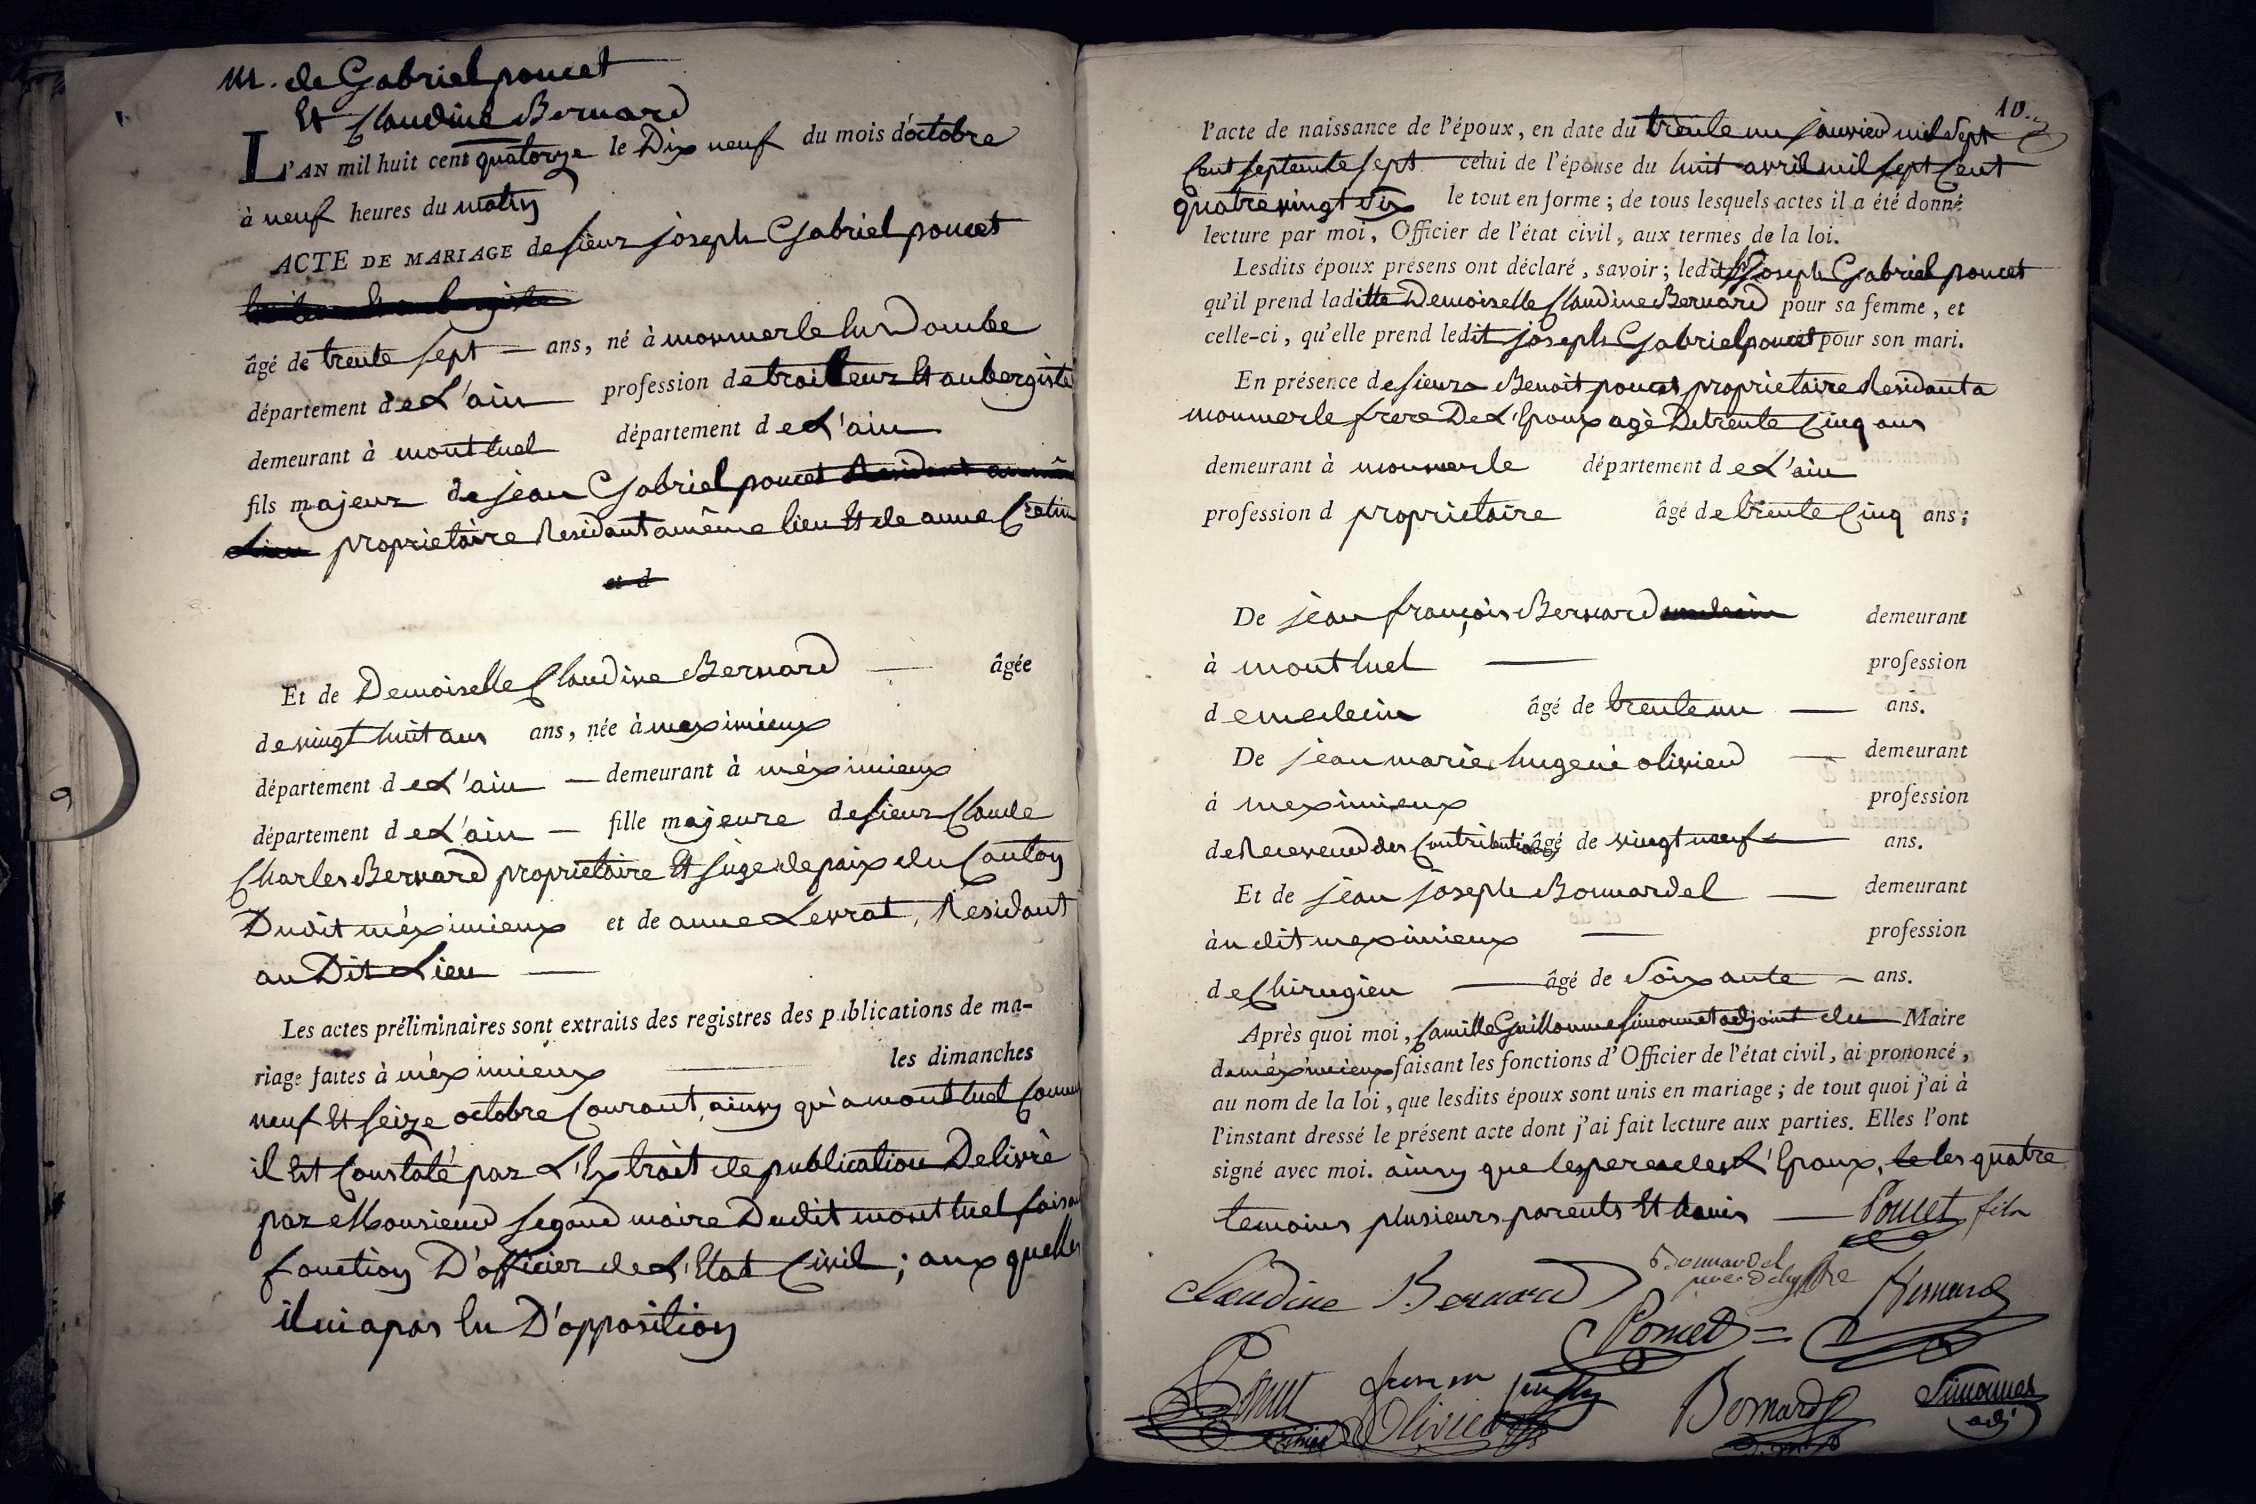 M. de Gabriel poncet
Et Claudine Bernard
L'AN mil huit cent quatorze le Dix neuf du mois d'octobre
à neuf heures du matin
ACTE DE MARIAGE de sieur joseph Gabriel poncet
âgé de trente sept — ans, né à monmerle en Dombe
département de L'ain profession de traitteur Et aubergiste
demeurant à montluel département de L'ain
fils majeur de jean Gabriel poncet Residant au même
Lieu proprietaire Residant a même lieu Et de anne Cretin
et d
Et de Demoiselle Claudine Bernard — âgée
de vingt huit ans ans, née à meximieux
département de L'ain — demeurant à méximieux
département de L'ain — fille majeure de sieur Claude
Charles Bernard proprietaire Et juge de paix du Canton
Dudit méximieux et de anne Levrat, Residant
au Dit Lieu —
Les actes préliminaires sont extraits des registres des publications de ma-
riage faites à méximieux — les dimanches
neuf Et seize octobre Courant, ainsy qu'a montluel Comme
il Est Constaté par L'Extrait de publication Delivré
par Monsieur Segaud maire Dudit montluel faisant
fonction D'officier de L'Etat Civil; aux quelles
il ni a pas Eu D'opposition
10.
l'acte de naissance de l'époux, en date du trente un janvier mil sept
Cent septente sept celui de l'épouse du huit avril mil sept Cent
quatre vingt six le tout en forme; de tous lesquels actes il a été donné
lecture par moi, Officier de l'état civil, aux termes de la loi.
Lesdits époux présens ont déclaré, savoir; ledit joseph Gabriel poncet
qu'il prend laditte Demoiselle Claudine Bernard pour sa femme, et
celle-ci, qu'elle prend ledit joseph Gabriel poncet pour son mari.
En présence de sieurs Benoit poncet proprietaire Residant a
monmerle frere De L'Epoux agè De trente Cinq ans
demeurant à monmerle département de L'ain
profession d proprietaire âgé de trente Cinq ans;
De jean françois Bernard medecin demeurant
à montluel — profession
de medecin âgé de trente un — ans.
De jean marie hugené olivier — demeurant
à meximieux profession
de Receveur des Contributions âgé de vingt neuf — ans.
Et de jean joseph Bonnardel — demeurant
àu dit meximieux — profession
de Chirugien — âgé de Soixante — ans.
Après quoi moi, Camille Guillaume Simonnet adjoint du Maire
de méximieux faisant les fonctions d'Officier de l'état civil, ai prononcé,
au nom de la loi, que lesdits époux sont unis en mariage; de tout quoi j'ai à
l'instant dressé le présent acte dont j'ai fait lecture aux parties. Elles l'ont
signé avec moi. ainsy que les peres de L'Epoux, le les quatre
temoins plusieurs parents Et amis — Poncet fils
Claudine Bernard Bonnardel Bernard
Poncet
Poncet Olivier Bernard Simonnet
adj